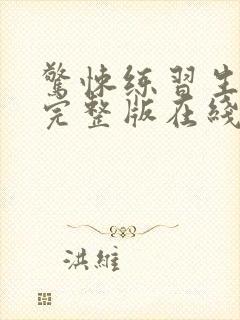 驚悚练習生
完整版在綫
洪維